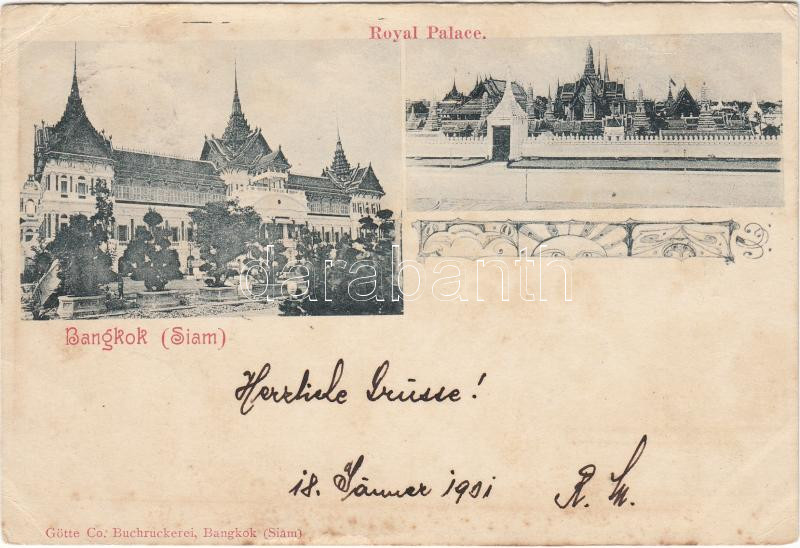 Royal Palace.
darabanth
Bangkok (Siam)
Herzliche Grüsse!
18. Jänner 1901
R. M.
Götte Co. Buchruckerei, Bangkok (Siam)